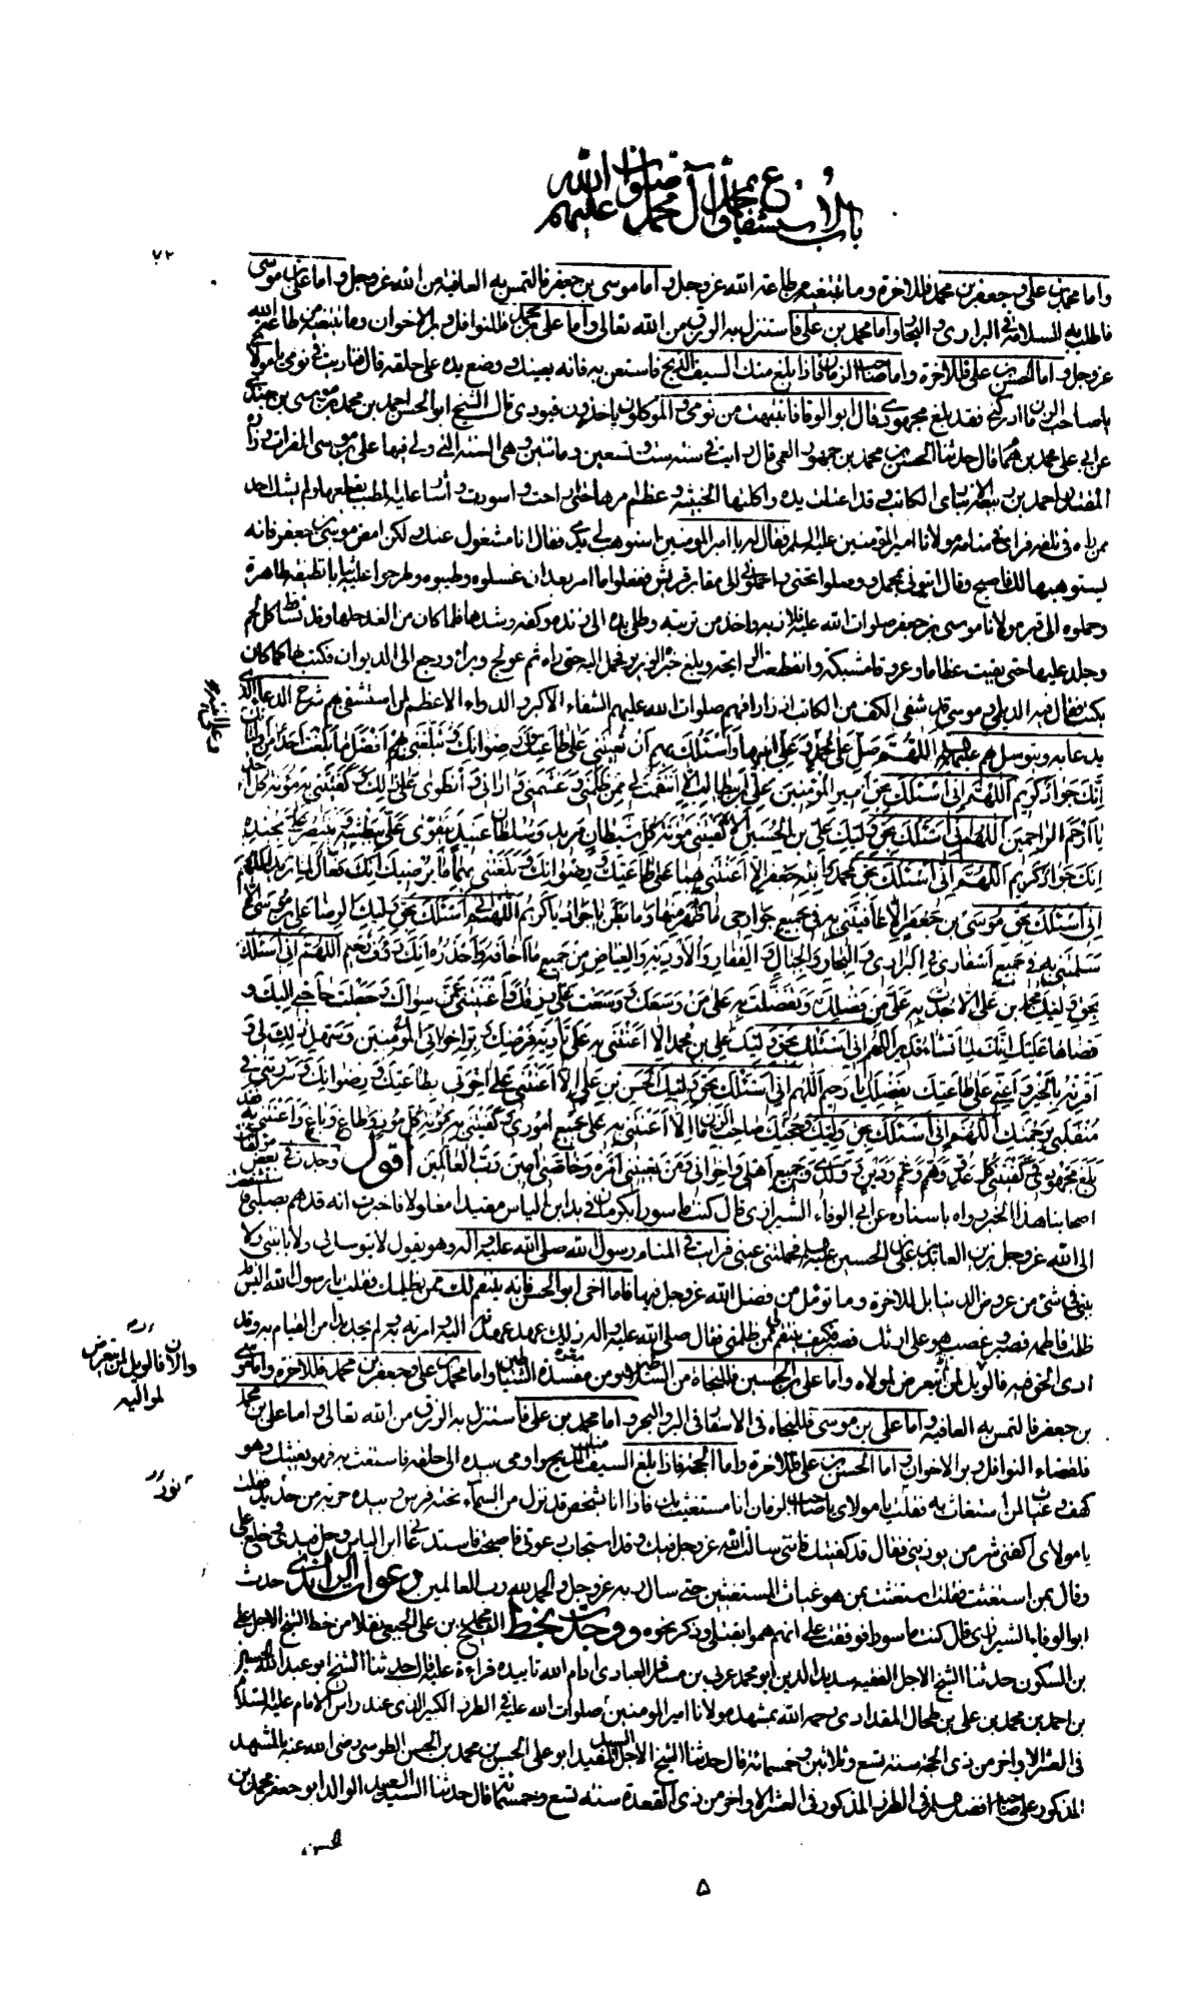 باب الاستشفاع بمحمد وآل محمد صلوات الله عليهم
٧٢
واما محمد بن علي وجعفر بن محمد فللاخرة وما تبتغيه من طاعة الله عز وجل واما موسى بن جعفر فالتمس به العافية من الله عز وجل واما علي بن موسى
فاطلب به السلامة في البراري والبحار واما محمد بن علي فاستنزل به الرزق من الله تعالى واما علي بن محمد فللنوافل وبر الاخوان وما تبتغيه من طاعة الله
عز وجل واما الحسن بن علي فللاخرة واما صاحب الزمان فاذا بلغ منك السيف الذبح فاستعن به فانه يعينك ووضع يده على حلقه قال فناديت في نومي يا مولاي
يا صاحب الزمان ادركني فقد بلغ مجهودي قال ابو الوفا فانتبهت من نومي والموكلون ياخذون قيودي قال الشيخ ابو الحسن احمد بن محمد بن موسى بن جندي
عن ابي علي محمد بن همام قال حدثنا الحسن بن محمد بن جمهور العمي قال رايت في سنة ست وتسعين ومائتين وهي السنة التي ولي فيها علي بن موسى الفرات وزارة
المقتدر احمد بن ربيعة الانباري الكاتب وقد اعتلت يده واكلتها الخبيثة وعظم امرها حتى راحت واسودت واشار عليه المطبب بقطعها ولم يشك احد
ممن راه في تلفه فراى في منامه مولانا امير المؤمنين عليه السلم فقال له يا امير المؤمنين استوهب لي يدي فقال انا مشغول عنك ولكن امض موسى بن جعفر فانه
يستوهبها لك فاصبح وقال ايتوني بمحمل ووطئوا تحتي واحملوني الى مقابر قريش ففعلوا ما امر بعد ان غسلوه وطيبوه وطرحوا عليه ثيابا نظيفة طاهرة
وحملوه الى قبر مولانا موسى بن جعفر صلوات الله عليه فلاذ به واخذ من تربته وطلى يده الى زنده وكفه وشدها فلما كان من الغد حلها وقد تساقط كل لحم
وجلد عليها حتى بقيت عظاما وعروقا مشبكة وانقطعت الرايحة وبلغ خبره الوزير فحمل اليه حتى راه ثم عولج وبرا ورجع الى الديوان وكتب بها كما كان
يكتب فقال فيه الديلمي وموسى قد شفى الكف من الكاتب اذ زارا فهم صلوات الله عليهم الشفاء الاكبر والدواء الاعظم لمن استشفى بهم شرح الدعا الذي
يدعا به ويتوسل بهم عليهم السلم اللهم صل على محمد وعلى ابنته وابنيها واسئلك بهم ان تعينني على طاعتك ورضوانك وتبلغني بهم افضل ما بلغت احدا من اوليائك
انك جواد كريم اللهم اني اسئلك بحق امير المؤمنين علي بن ابي طالب الا انتقمت لي ممن ظلمني وغشمني واذاني وانطوى على ذلك وكفيتني به مؤنة كل احد
يا ارحم الراحمين اللهم اني اسئلك بحق وليك علي بن الحسين الا كفيتني مؤنة كل شيطان مريد وسلطان عنيد يتقوى علي ببطشه وينتصر علي بجنده
انك جواد كريم اللهم اني اسئلك بحق محمد وابنه جعفر الا اعنتني بهما على طاعتك ورضوانك وبلغتني بهما ما يرضيك انك فعال لما تريد اللهم
اني اسئلك بحق موسى بن جعفر الا عافيتني به في جميع جوارحي ما ظهر منها وما بطن يا جواد يا كريم اللهم اني اسئلك بحق وليك الرضا علي بن موسى الا
سلمتني به في جميع اسفاري في البراري والبحار والجبال والقفار والاودية والغياض من جميع ما اخافه واحذره انك رؤف رحيم اللهم اني اسئلك
بحق وليك محمد بن علي الا جدت به علي من فضلك وتفضلت به علي من وسعك ووسعت علي رزقك واغنيتني عمن سواك وجعلت حاجتي اليك و
قضاها عليك انك لما تشاء قدير اللهم اني اسئلك بحق وليك علي بن محمد الا اعنتني به على تادية فرضك وبر اخواني المؤمنين وسهل ذلك لي و
اقرنه بالخير واعني على طاعتك بفضلك يا رحيم اللهم اني اسئلك بحق وليك الحسن بن علي الا اعنتني على اخرتي بطاعتك ورضوانك وسررتني في
منقلبي برحمتك اللهم اني اسئلك بحق وليك وحجتك صاحب الزمان الا اعنتني به على جميع اموري وكفيتني به مؤنة كل موذ وطاغ وباغ واعنتني به فقد
بلغ مجهودي وكفيتني كل عدو وهم وغم ودين وولدي وجميع اهلي واخواني ومن يعنيني امره وخاصتي امين رب العالمين اقول وجدت في بعض مؤلفات
اصحابنا هذا الخبر رواه باسناده عن ابي الوفاء الشيرازي قال كنت ماسورا بكرمان في يد ابن الياس مقيدا مغلولا فاخبرت انه قد هم بصلبي فاستشفعت
الى الله عز وجل بزين العابدين علي بن الحسين عليه السلم فحملتني عيني فرايت في المنام رسول الله صلى الله عليه واله وهو يقول لا تتوسل بي ولا بابنتي ولا
بابني في شئ من عروض الدنيا بل للاخرة وما تؤمل من فضل الله عز وجل فيها فاما اخي ابو الحسن فانه ينتقم لك ممن يظلمك فقلت يا رسول الله اليس قد
ظلمت فاطمة فصبر وغصب هو على ارثك فصبر فكيف ينتقم لي ممن ظلمني فقال صلى الله عليه واله ذلك عهد عهدته اليه وامرته به ولم يجد بدا من القيام به وقد
ادى الحق فيه فالويل لمن يتعرض لمولاه واما علي بن الحسين فللنجاة من السلاطين ومن مفسدة الشياطين واما محمد بن علي وجعفر بن محمد فللاخرة واما موسى
بن جعفر فالتمس به العافية واما علي بن موسى فللنجاة في الاسفار في البر والبحر واما محمد بن علي فاستنزل به الرزق من الله تعالى واما علي بن محمد
فلقضاء النوافل وبر الاخوان واما الحسن بن علي فللاخرة واما الحجة فاذا بلغ السيف منك المذبح واومى بيده الى حلقه فاستغث به فهو يغيثك وهو
كهف وغياث لمن استغاث به فقلت يا مولاي يا صاحب الزمان انا مستغيث بك فاذا انا بشخص قد نزل من السماء تحته فرس وبيده حربة من حديد فقلت
يا مولاي اكفني شر من يوذيني فقال قد كفيتك فانني سالت الله عز وجل فيك وقد استجاب دعوتي فاصبحت فاستدعاني ابن الياس وحل قيدي وخلع علي
وقال بمن استغثت فقلت استغثت بمن هو غياث المستغيثين حتى سال ربه عز وجل والحمد لله رب العالمين دعوات الراوندي حدث
ابو الوفاء الشيرازي قال كنت ماسورا فوقفت على انهم هموا بقتلي وذكر نحوه ووجدت بخط الشيخ محمد بن علي الجبعي نقلا من خط الشيخ الاجل علي
بن السكون حدثنا الشيخ الاجل الفقيه سديد الدين ابو محمد عربي بن مسافر العبادي ادام الله تاييده قراءة عليه قال حدثنا الشيخ ابو عبد الله الحسين
بن احمد بن محمد بن علي بن طحال المقدادي رحمه الله بمشهد مولانا امير المؤمنين صلوات الله عليه في الطرز الكبير الذي عند راس الامام عليه السلام
في العشر الاواخر من ذي الحجة سنة تسع وثلاثين وخمسمائة قال حدثنا الشيخ الاجل السيد المفيد ابو علي الحسن بن محمد بن الحسن الطوسي رضي الله عنه بالمشهد
المذكور على صاحبه افضل السلم في الطرز المذكور في العشر الاواخر من ذي القعدة سنة تسع وخمسمائة قال حدثنا السيد السعيد الوالد ابو جعفر محمد بن
الحسن
والان فالويل لمن يتعرض
لمواليه
نور
٥